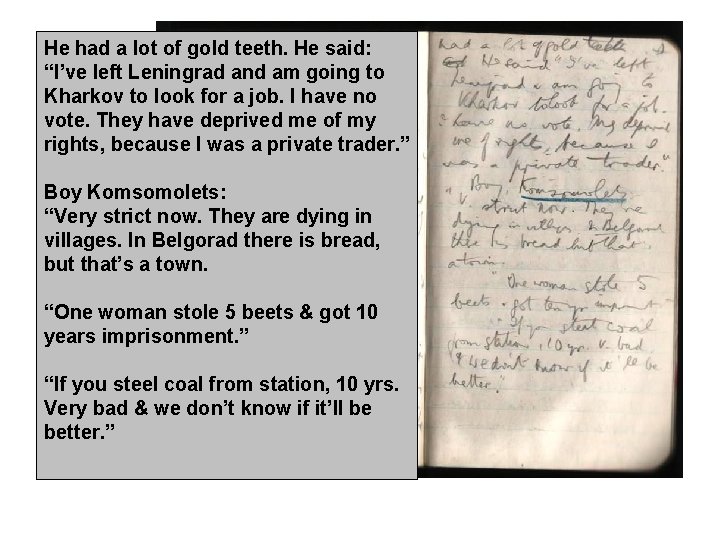 He had a lot of gold teeth. He said:
“I’ve left Leningrad and am going to
Kharkov to look for a job. I have no
vote. They have deprived me of my
rights, because I was a private trader. ”
Boy Komsomolets:
“Very strict now. They are dying in
villages. In Belgorad there is bread,
but that’s a town.
“One woman stole 5 beets & got 10
years imprisonment. ”
“If you steel coal from station, 10 yrs.
Very bad & we don’t know if it’ll be
better. ”
had a lot of gold teeth
He said "I've left
Leningrad & am going to
Kharkov to look for a job.
I have no vote. They deprived
me of rights, because I
was a private trader."
Boy, Komsomolets
"V. strict now. They are
dying in villages. In Belgorad
there is bread but that
a town.
"One woman stole 5
beets & got ten yrs imprisonment"
"If you steal coal
from station, 10 yrs. V. bad
& we don't know if it'll be
better."